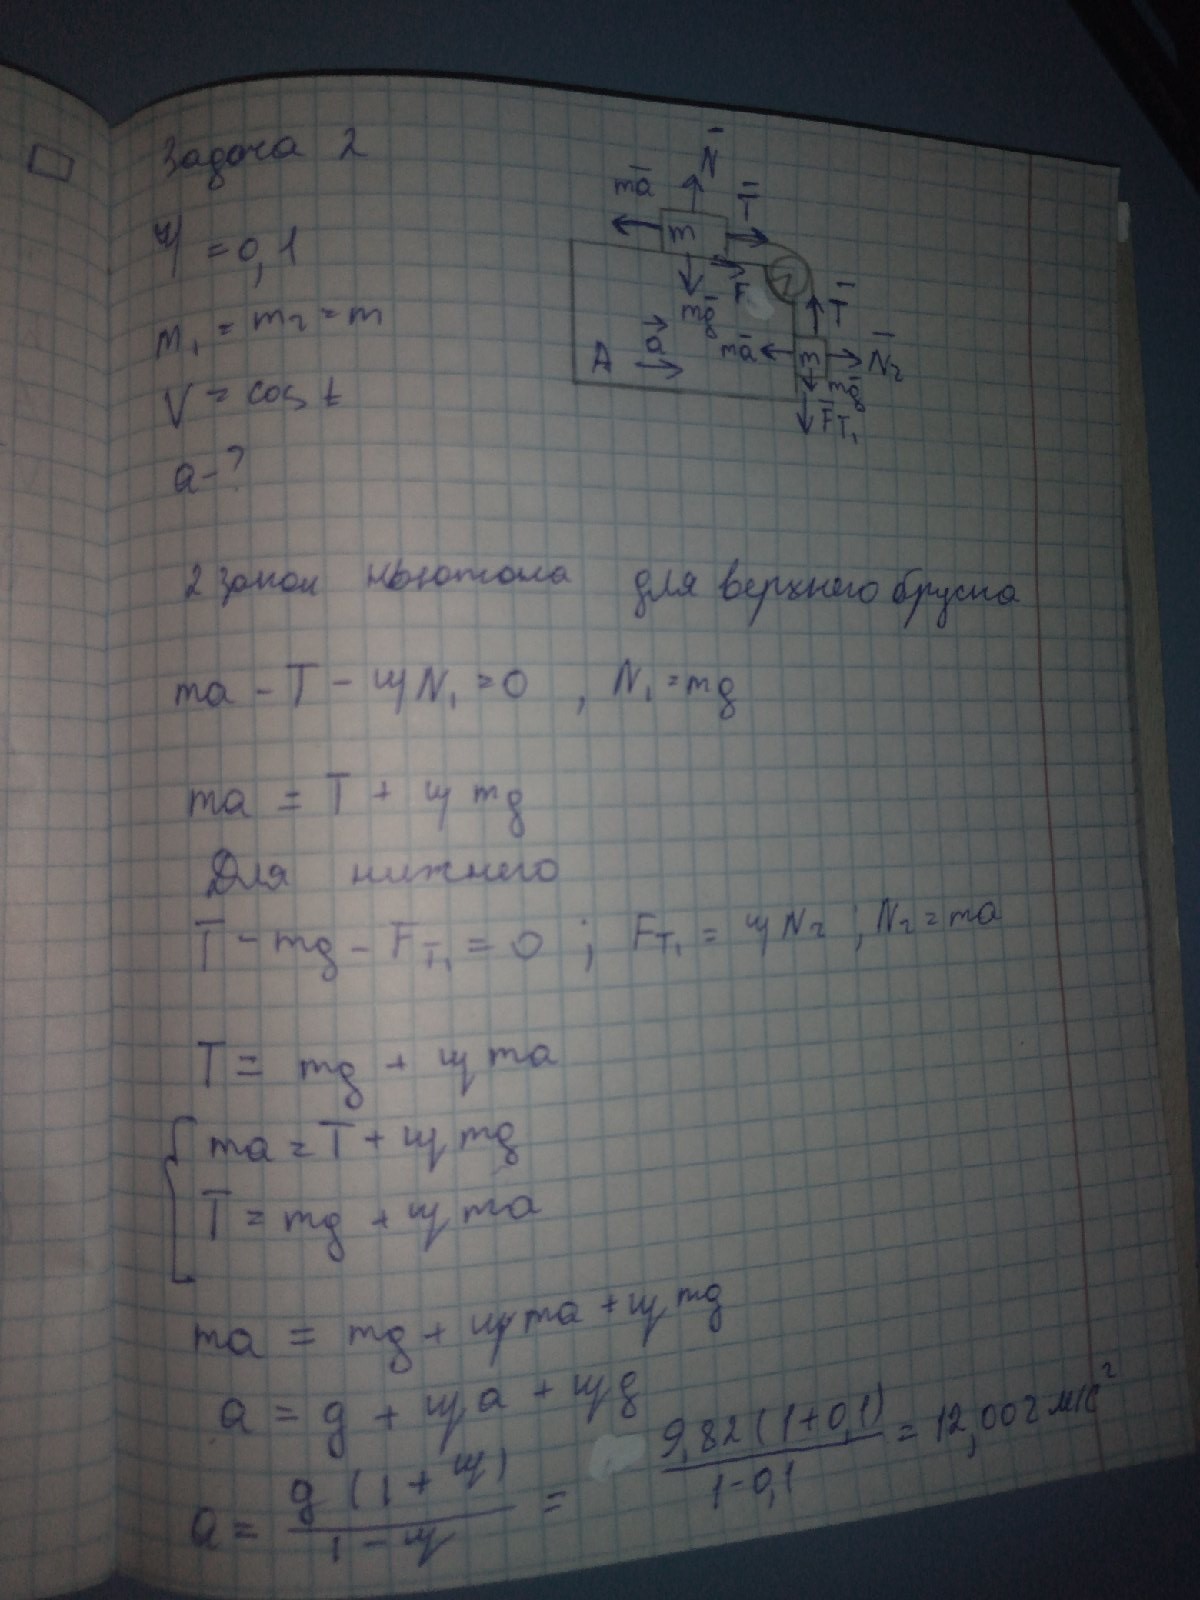 Задача 2
μ = 0,1
m₁ = m₂ = m
V = const
a - ?
N̄
mā
T̄
m
F
mḡ
T̄
a⃗
A
mā
m
N̄₂
mḡ
F̄T₁
2 закон ньютона для верхнего бруска
ma - T - μN₁ = 0 , N₁ = mg
ma = T + μmg
Для нижнего
T - mg - FT₁ = 0 ; FT₁ = μN₂ ; N₂ = ma
T = mg + μma
{ ma = T + μmg
T = mg + μma
ma = mg + μma + μmg
a = g + μa + μg
a = g(1 + μ) / 1 - μ = 9,82(1+0,1) / 1-0,1 = 12,002 м/с²